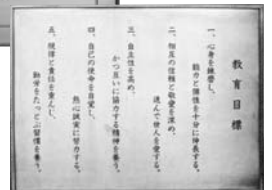 教育目標
一、心身を練磨し、
能力と個性を十分に伸長する。
二、相互の信頼と敬愛を深め、
進んで世人を愛する。
三、自主性を高め、
かつ互いに協力する精神を養う。
四、自己の使命を自覚し、
熱心誠実に努力する。
五、規律と責任を重んじ、
勤労をたっとぶ習慣を養う。